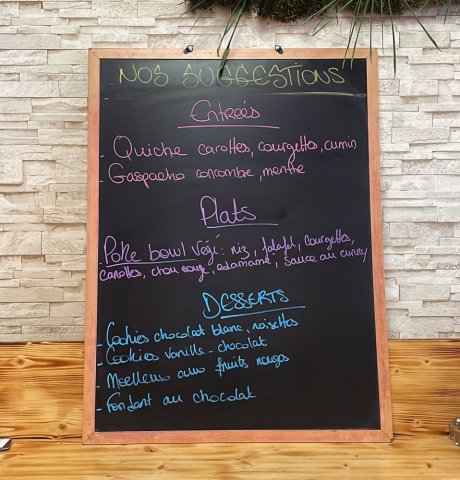 NOS SUGGESTIONS
Entreés
- Quiche carottes, courgettes, cumin
- Gaspacho concombre, menthe
Plats
- Poke bowl végé : riz, falafel, courgettes,
carottes, chou rouge, edamame, sauce au curry
DESSERTS
- Cookies chocolat blanc, noisettes
- Cookies vanille - chocolat
- Moelleux aux fruits rouges
- Fondant au chocolat